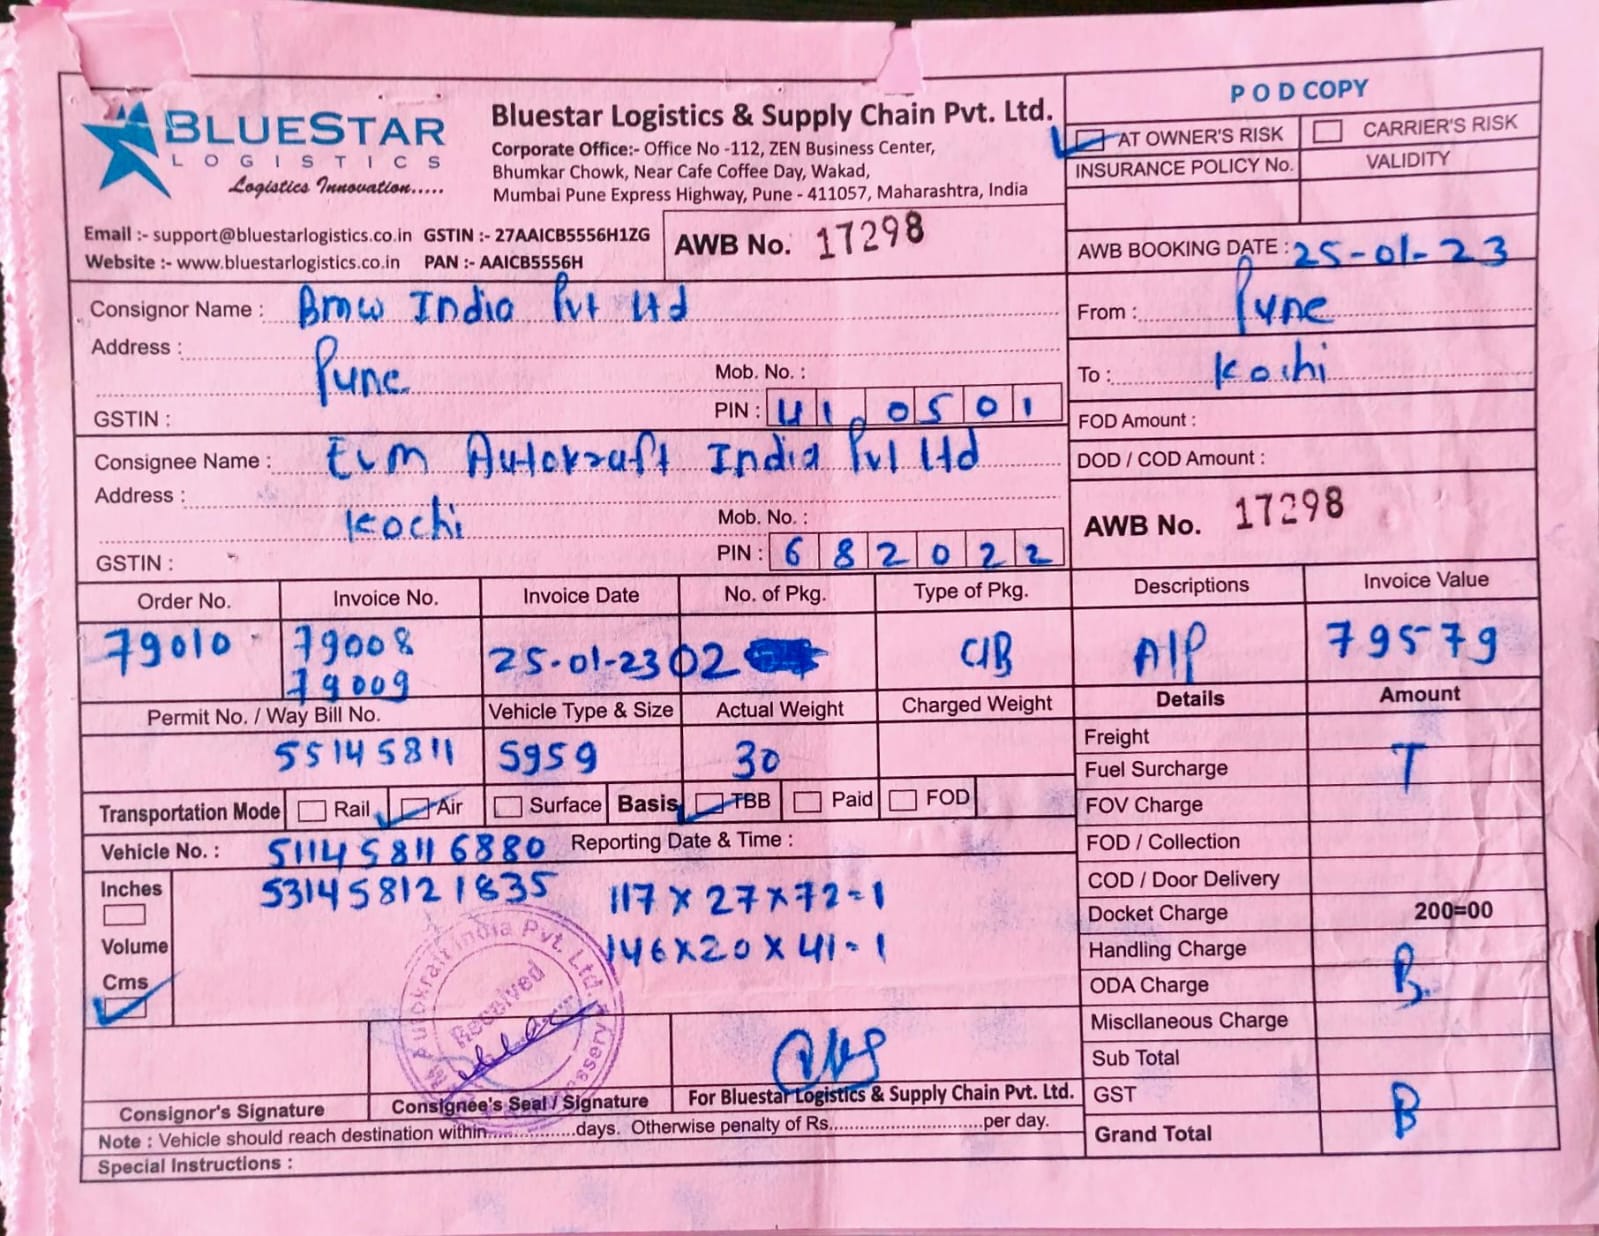 BLUESTAR
LOGISTICS
Logistics Innovation.....
Bluestar Logistics & Supply Chain Pvt. Ltd.
Corporate Office:- Office No -112, ZEN Business Center,
Bhumkar Chowk, Near Cafe Coffee Day, Wakad,
Mumbai Pune Express Highway, Pune - 411057, Maharashtra, India
Email :- support@bluestarlogistics.co.in GSTIN :- 27AAICB5556H1ZG
Website :- www.bluestarlogistics.co.in PAN :- AAICB5556H
AWB No. 17298
POD COPY
AT OWNER'S RISK CARRIER'S RISK
INSURANCE POLICY No. VALIDITY
AWB BOOKING DATE : 25-01-23
Consignor Name : Bmw India Pvt Ltd
Address :
Pune
Mob. No. :
GSTIN :
PIN : 410501
From : Pune
To : Kochi
FOD Amount :
DOD / COD Amount :
Consignee Name : Evm Autokraft India Pvt Ltd
Address :
Kochi
Mob. No. :
GSTIN :
PIN : 682022
AWB No. 17298
Order No. Invoice No. Invoice Date No. of Pkg. Type of Pkg. Descriptions Invoice Value
79010 79008 25-01-23 02 C/B A/P 79579
79009
Permit No. / Way Bill No. Vehicle Type & Size Actual Weight Charged Weight
55145811 5959 30
Transportation Mode Rail Air Surface Basis TBB Paid FOD
Vehicle No. : 511458116880 Reporting Date & Time :
531458121835
117 x 27 x 72 = 1
146 x 20 x 41 - 1
Inches
Volume
Cms
Details Amount
Freight
Fuel Surcharge T
FOV Charge
FOD / Collection
COD / Door Delivery
Docket Charge 200=00
Handling Charge
ODA Charge B
Miscllaneous Charge
Sub Total
GST
Grand Total B
Autokraft India Pvt. Ltd.
Received
Consignor's Signature
Consignee's Seal / Signature
For Bluestar Logistics & Supply Chain Pvt. Ltd.
Note : Vehicle should reach destination within.................days. Otherwise penalty of Rs..............................per day.
Special Instructions :